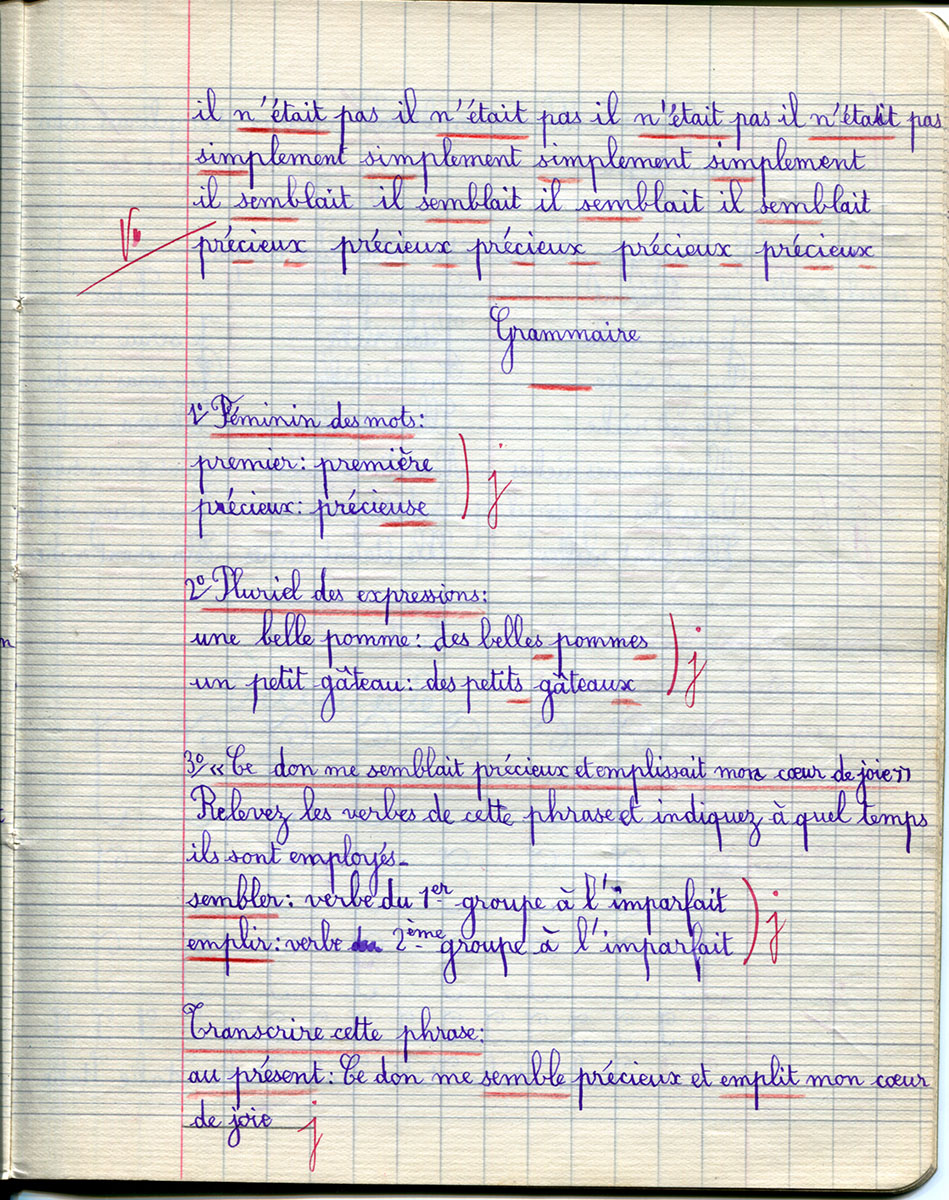 il n'était pas il n'était pas il n'était pas il n'était pas
simplement simplement simplement simplement
il semblait il semblait il semblait il semblait
Vu
précieux précieux précieux précieux précieux
Grammaire
1º Féminin des mots:
premier: première
précieux: précieuse
j
2º Pluriel des expressions:
une belle pomme: des belles pommes
un petit gâteau: des petits gâteaux
j
3º « Ce don me semblait précieux et emplissait mon cœur de joie »
Relevez les verbes de cette phrase et indiquez à quel temps
ils sont employés.
sembler: verbe du 1er groupe à l'imparfait
emplir: verbe du 2ème groupe à l'imparfait
j
Transcrire cette phrase:
au présent: Ce don me semble précieux et emplit mon cœur
de joie j